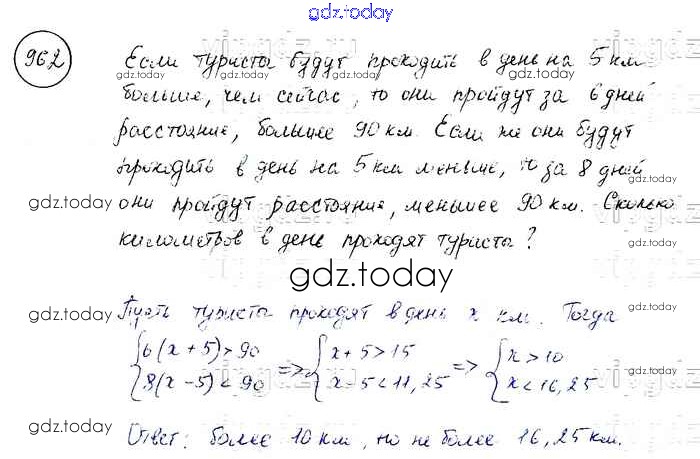 gdz.today
962
Если туристы будут проходить в день на 5 км
больше, чем сейчас, то они пройдут за 6 дней
расстояние, большее 90 км. Если же они будут
проходить в день на 5 км меньше, то за 8 дней
они пройдут расстояние, меньшее 90 км. Сколько
километров в день проходят туристы?
gdz.today
Пусть туристы проходят в день x км. Тогда
{6(x + 5) > 90 => {x + 5 > 15 => {x > 10
{8(x - 5) < 90 {x - 5 < 11,25 {x < 16,25
Ответ: более 10 км, но не более 16,25 км.
gdz.today